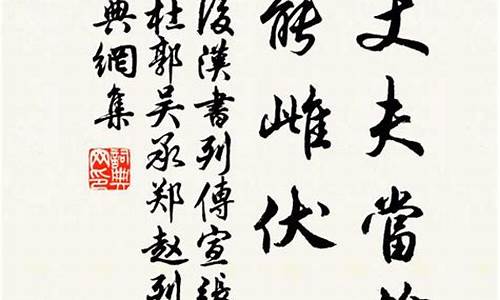 丈夫當
能雌伏
後漢書列傳宣張
杜郭吴承鄭趙列
典網集